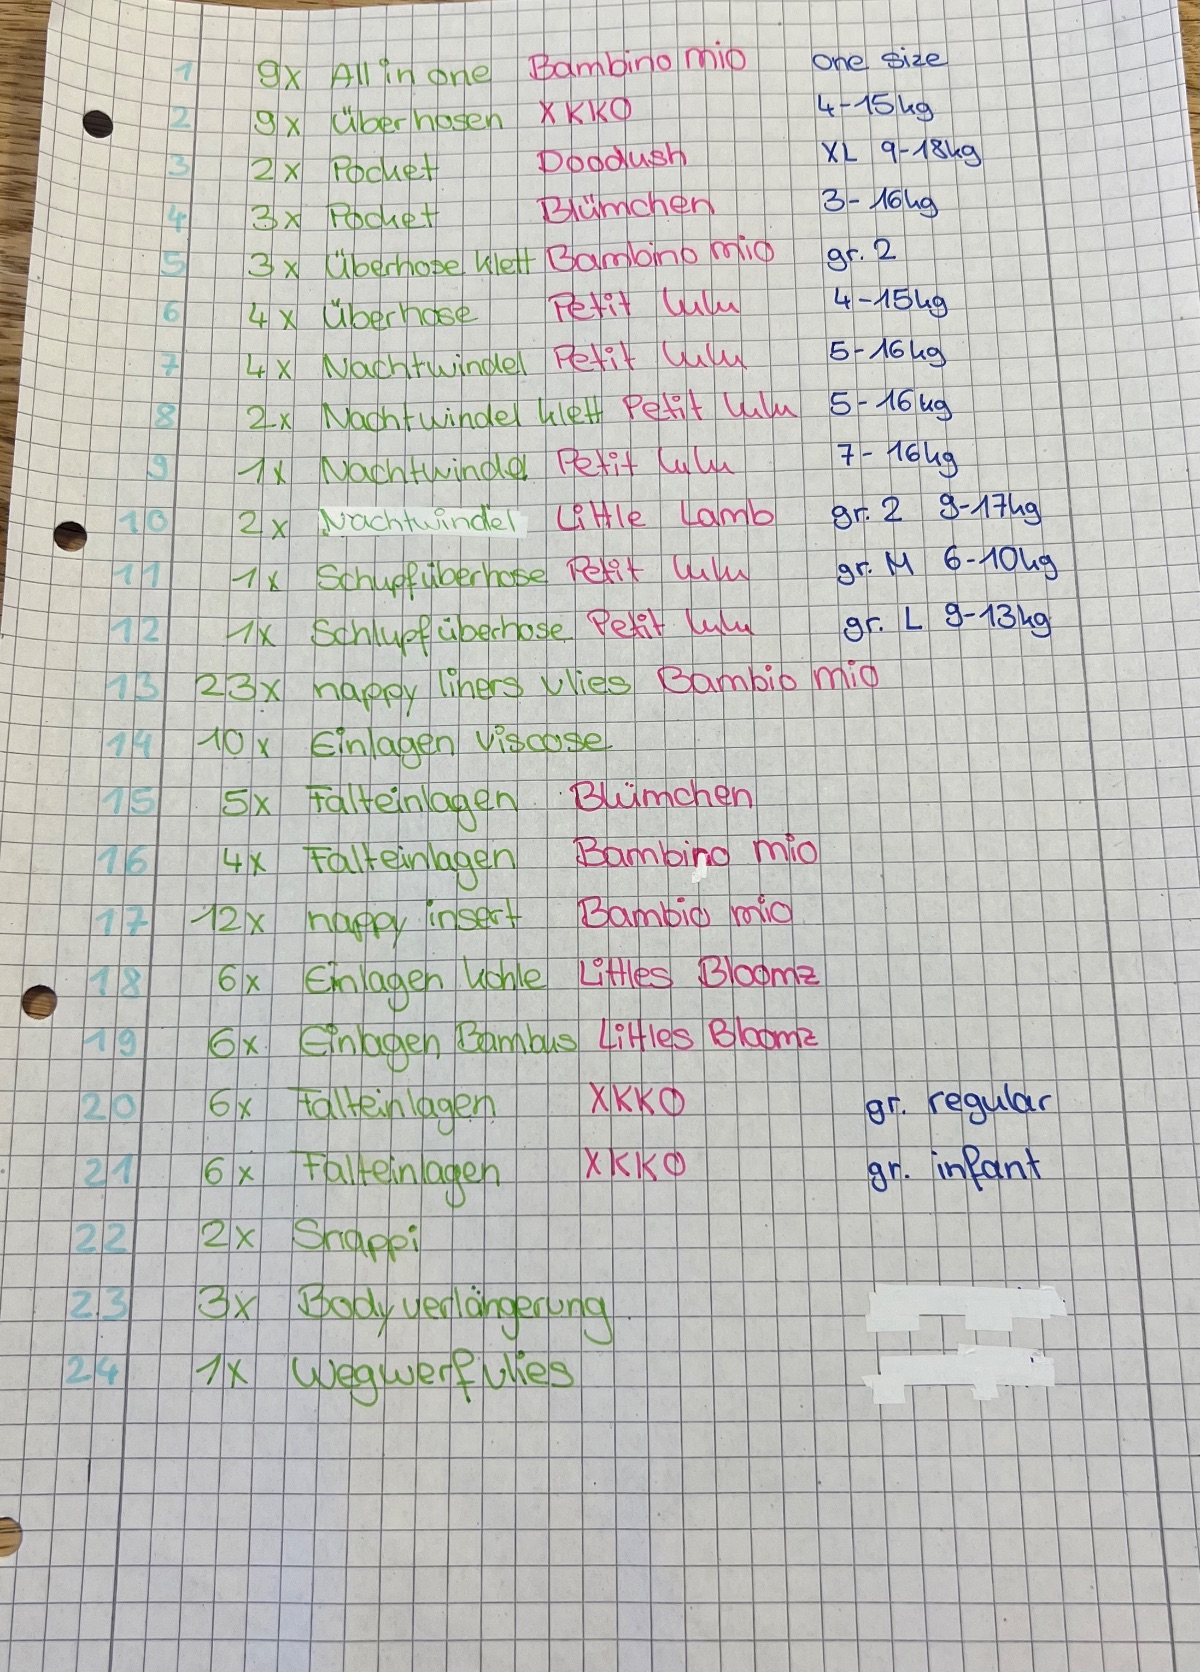 1 9x All in one Bambino mio one size
2 9x Überhosen XKKO 4-15kg
3 2x Pocket Doodush XL 9-18kg
4 3x Pocket Blümchen 3-16kg
5 3x Überhose klett Bambino mio gr. 2
6 4x Überhose Petit Lulu 4-15kg
7 4x Nachtwindel Petit Lulu 5-16kg
8 2x Nachtwindel klett Petit Lulu 5-16kg
9 1x Nachtwindel Petit Lulu 7-16kg
10 2x Nachtwindel Little Lamb gr. 2 9-17kg
11 1x Schupfüberhose Petit Lulu gr. M 6-10kg
12 1x Schlupfüberhose Petit Lulu gr. L 9-13kg
13 23x nappy liners vlies Bambio mio
14 10x Einlagen viscose
15 5x Falteinlagen Blümchen
16 4x Falteinlagen Bambino mio
17 12x nappy insert Bambio mio
18 6x Einlagen Kohle Littles Bloomz
19 6x Einlagen Bambus Littles Bloomz
20 6x Falteinlagen XKKO gr. regular
21 6x Falteinlagen XKKO gr. infant
22 2x Snappi
23 3x Bodyverlängerung
24 1x Wegwerfvlies